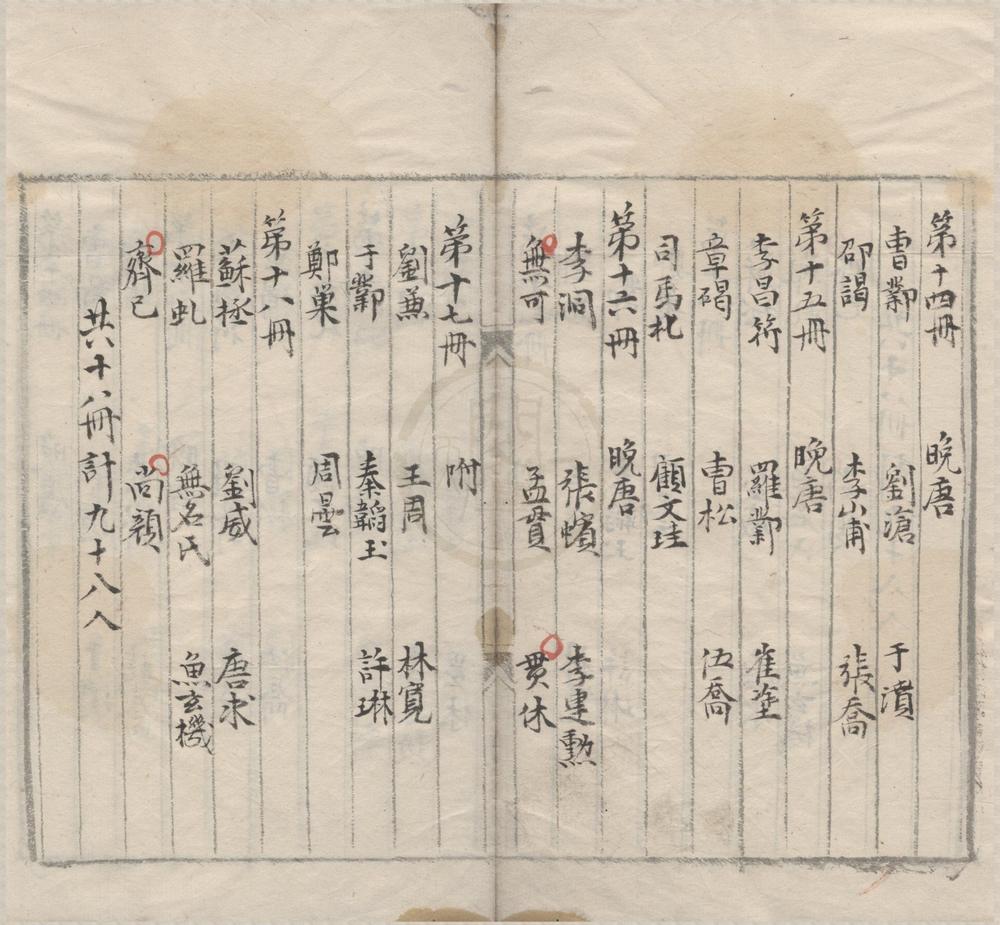 第十四冊 晚唐
曹鄴 劉滄 于濆
邵謁 李山甫 張喬
第十五冊 晚唐
李昌符 羅鄴 崔塗
章碣 曹松 伍喬
司馬札 顧文珪
第十六冊 晚唐
李洞 張蠙 李建勲
無可 孟貫 貫休
第十七冊 附
劉兼 王周 林寬
于鄴 秦韜玉 許琳
鄭巢 周曇
第十八冊
蘇拯 劉威 唐求
羅虬 無名氏 魚玄機
齊已 尚顔
共十八冊計九十八人